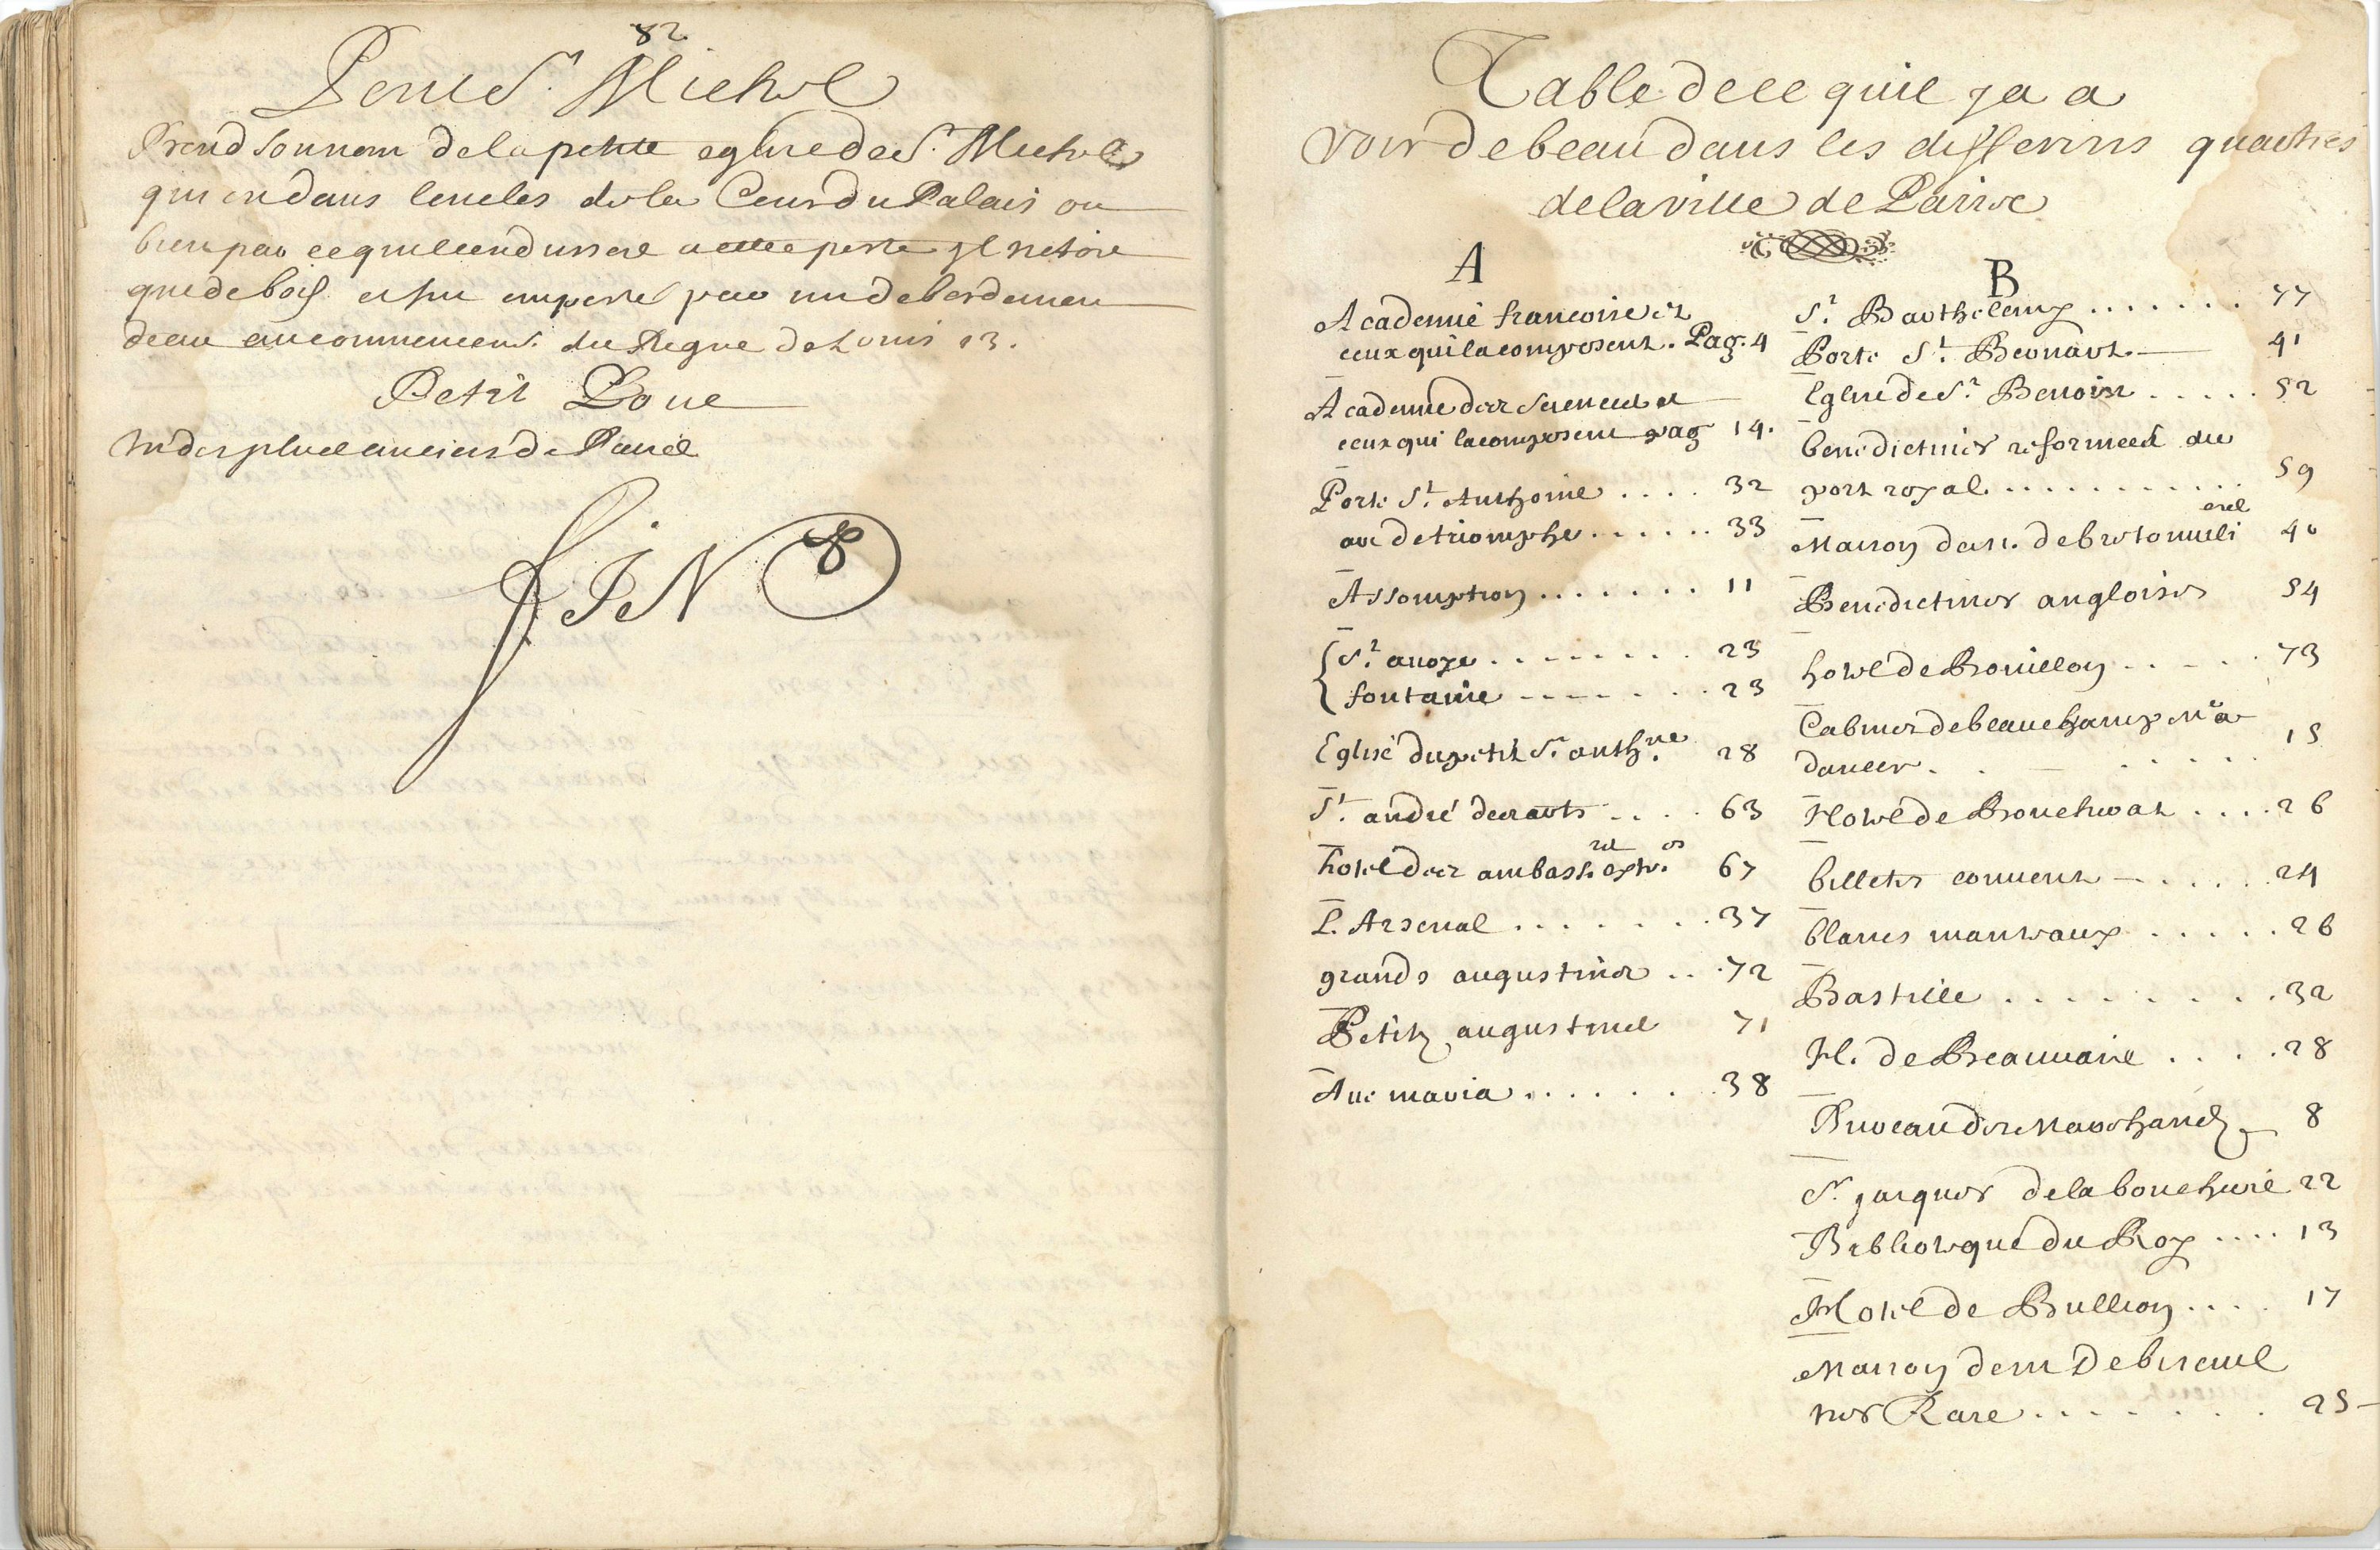 82
Pont St. Michel
Prend son nom de la petite eglise de St. Michel
qui est dans lenclos de la Cour du Palais ou
bien par ce quil est dressé a cette porte Il nétoit
que de bois et fut emporté par un debordement
deau au commencemt. du Regne de Louis 13.
Petit Pont
un des plus anciens de Paris
FIN
Table de ce quil ya a
voir de beau dans les differens quartiers
de la ville de Paris
A
Academie francoise et
ceux qui la composent. Pag. 4
Academie des Sciences et
ceux qui la composent pag 14.
Porte St. Anthoine .... 32
arc de triomphe ...... 33
Assomption ....... 11
St. avoye ........ 23
fontaine ....... 23
Eglise du petit St. anthne. 28
St. andré des arts .... 63
hotel des ambass. extr. 67
L'Arsenal ....... 37
grands augustins ... 72
Petits augustins 71
Ave maria ....... 38
B
St. Barthelemy ....... 77
Porte St. Bernard. — 41
Eglise de St. Benoist ..... 52
benedictines reformees du
port royal ........... 59
Maison de M. de bretonvilliers 40
Benedictins anglois 54
hotel de Bouillon ..... 73
Cabinet de beauchamp Me a
dancer. ..... 15
Hotel de Boucherat .... 26
billetes couvent — ..... 24
blancs manteaux ..... 26
Bastille ......... 32
H. de Beauvais .... 28
Bureau des Marchands 8
St. jacques de la boucherie 22
Biblioteque du Roy .... 13
Hotel de Bullion .... 17
Maison de M. Debreuil
Rare ....... 25